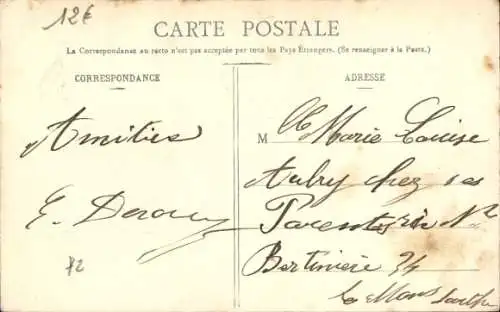 12€
CARTE POSTALE
La Correspondance au recto n'est pas acceptée par tous les Pays Étrangers. (Se renseigner à la Poste.)
CORRESPONDANCE
Amitiés
E.
72
ADRESSE
M lle Marie Louise
Aubry chez ses
Parents rue
Bertinière 34
Le Mans Sarthe